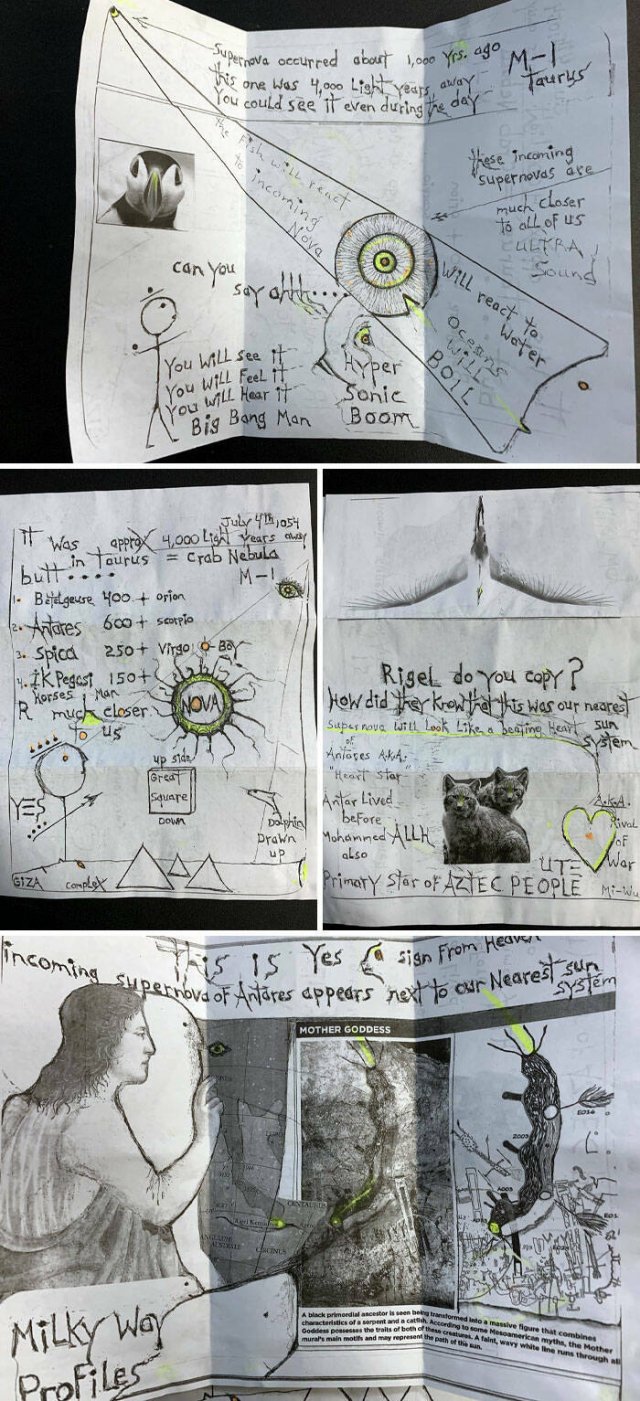 Supernova occurred about 1,000 yrs. ago
this one was 4,000 Light years away
You could see it even during the day
M-1
Taurus
the Fish will react
to incoming
Nova
these incoming
supernovas are
much closer
to all of us
ULTRA
Sound
can you
say ahh....
will react to
water
Oceans
will
BOIL
You will see it
You will Feel it
You will Hear it
Big Bang Man
Hyper
Sonic
Boom
July 4th, 1054
It was approx 4,000 Light years away
butt.... in Taurus = Crab Nebula
M-1
1. Betelgeuse 400+ orion
2. Antares 600+ scorpio
3. Spica 250+ Virgo Boy
4. IK Pegasi 150+
Horses, Man
R much closer
us
NOVA
YES
up side
Great
Square
DOWN
Dolphin
Drawn
up
GIZA
complex
Rigel do you copy?
How did they know that this was our nearest
sun
system
Supernova will Look Like a beating Heart
of
Antares A.K.A.
"Heart Star"
Antar Lived
before
Mohammed ALLH
also
A.K.A.
Rival
of
War
UTE
Mi-Wu
Primary Star of AZTEC PEOPLE
This is Yes sign From Heaven
incoming supernova of Antares appears next to our Nearest sun
system
MOTHER GODDESS
CENTAURUS
CIRCINUS
E026
Z003
A003
Milky Way
Profiles
A black primordial ancestor is seen being transformed into a massive figure that combines
characteristics of a serpent and a catfish. According to some Mesoamerican myths, the Mother
Goddess possesses the traits of both of these creatures. A faint, wavy white line runs through all
mural's main motifs and may represent the path of the sun.